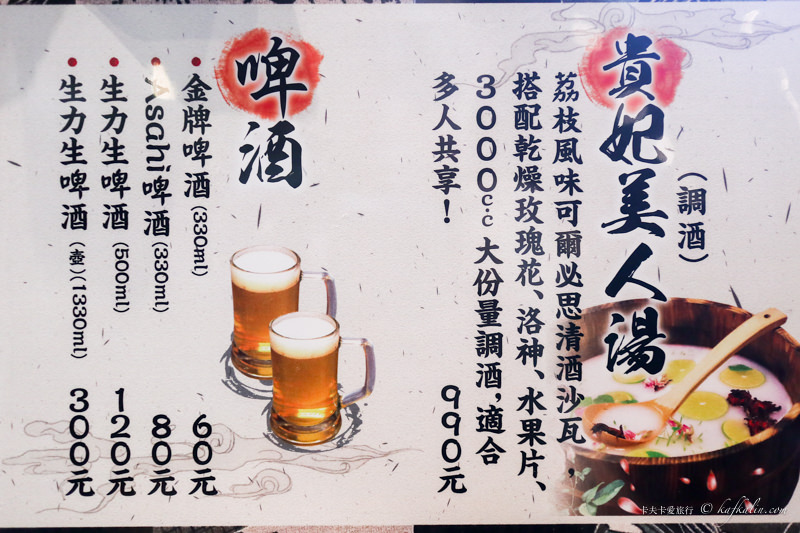 貴妃美人湯
（調酒）
荔枝風味可爾必思清酒沙瓦，
搭配乾燥玫瑰花、洛神、水果片、
3000c.c大份量調酒，適合
多人共享！
990元
啤酒
• 金牌啤酒(330ml) 60元
• Asahi啤酒(330ml) 80元
• 生力生啤酒(500ml) 120元
• 生力生啤酒(壺)(1330ml) 300元
卡夫卡愛旅行 © kafkalin.com